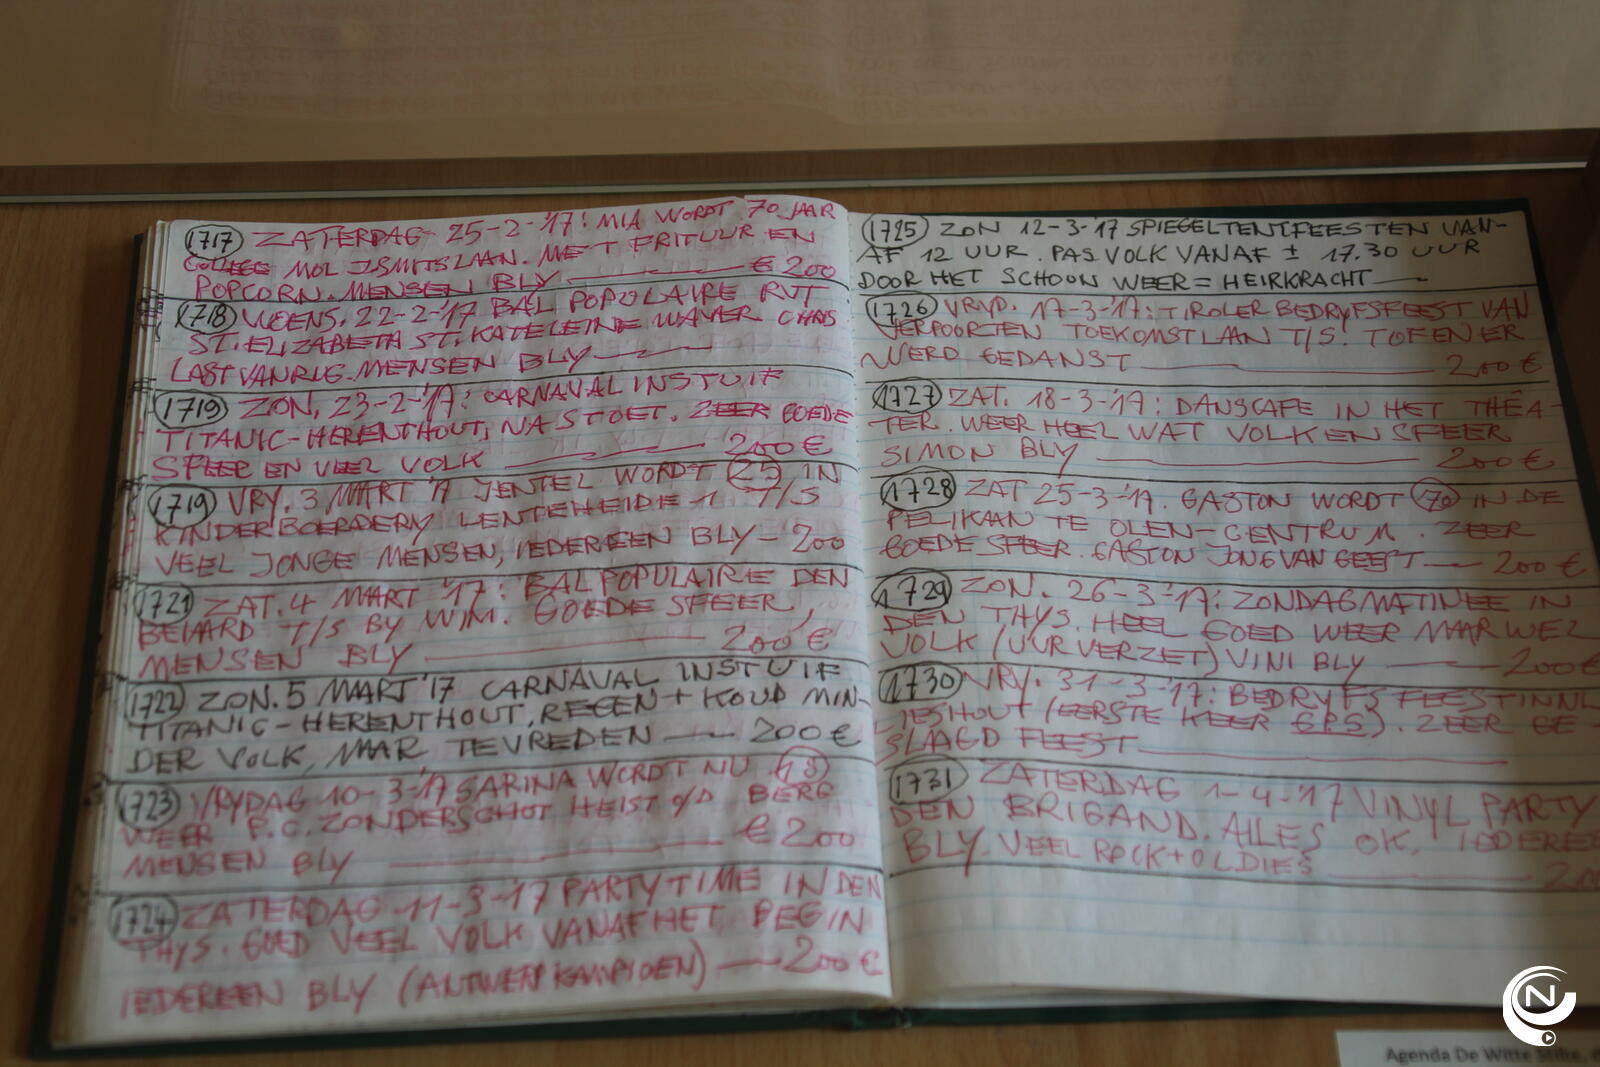 1717 ZATERDAG 25-2-'17: MIA WORDT 70 JAAR
COLLEGE MOL J. SMITSLAAN. MET FRITUUR EN
POPCORN. MENSEN BLY € 200
1718 WOENS. 22-2-'17 BAL POPULAIRE RVT
ST. ELIZABETH ST. KATELEINE WAVER CHRIS
LAST VAN RUG. MENSEN BLY
1719 ZON. 23-2-'17: CARNAVAL INSTUIF
TITANIC-HERENTHOUT, NA STOET. ZEER GOEDE
SFEER EN VEEL VOLK 200 €
1719 VRY. 3 MART '17 JENTEL WORDT 25 IN
KINDERBOERDERY LENTEHEIDE 1 T/S
VEEL JONGE MENSEN, IEDEREEN BLY - 200
1721 ZAT. 4 MART '17: BAL POPULAIRE DEN
BEIAARD T/S BY WIM. GOEDE SFEER,
MENSEN BLY 200 €
1722 ZON. 5 MAART '17 CARNAVAL INSTUIF
TITANIC-HERENTHOUT, REGEN + KOUD MIN-
DER VOLK, MAAR TEVREDEN 200 €
1723 VRYDAG 10-3-'17 SARINA WORDT NU 18
WEER P.C. ZONDERSCHOT HEIST O/D BERG
MENSEN BLY € 200
1724 ZATERDAG 11-3-'17 PARTYTIME IN DEN
THYS. GOED VEEL VOLK VANAF HET BEGIN
IEDEREEN BLY (ANTWERP KAMPIOEN) 200 €
1725 ZON 12-3-'17 SPIEGELTENTFEESTEN VAN-
AF 12 UUR. PAS VOLK VANAF ± 17.30 UUR
DOOR HET SCHOON WEER = HEIRKRACHT
1726 VRYD. 17-3-'17: TIROLER BEDRYFSFEEST VAN
VERPOORTEN TOEKOMSTLAAN T/S. TOF EN ER
WERD GEDANST 200 €
1727 ZAT. 18-3-'17: DANSCAFE IN HET THÉA-
TER. WEER HEEL WAT VOLK EN SFEER
SIMON BLY 200 €
1728 ZAT 25-3-'17. GASTON WORDT 70 IN DE
PELIKAAN TE OLEN-CENTRUM. ZEER
GOEDE SFEER. GASTON JONG VAN GEEST 200 €
1729 ZON. 26-3-'17: ZONDAGMATINEE IN
DEN THYS. HEEL GOED WEER MAAR WEL
VOLK (UUR VERZET) VINI BLY 200 €
1730 VRY. 31-3-'17: BEDRYFSFEEST IN NL
LIESHOUT (EERSTE KEER G.P.S). ZEER GE-
SLAAGD FEEST
1731 ZATERDAG 1-4-'17 VINYL PARTY
DEN BRIGAND. ALLES OK, IEDEREE
BLY. VEEL ROCK + OLDIES
N
Agenda De Witte Stilte,